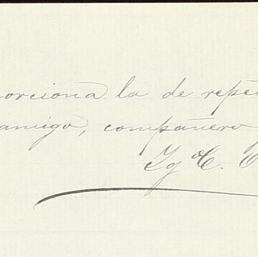 orciona la de repe
amigo, compañero
Yg. C.